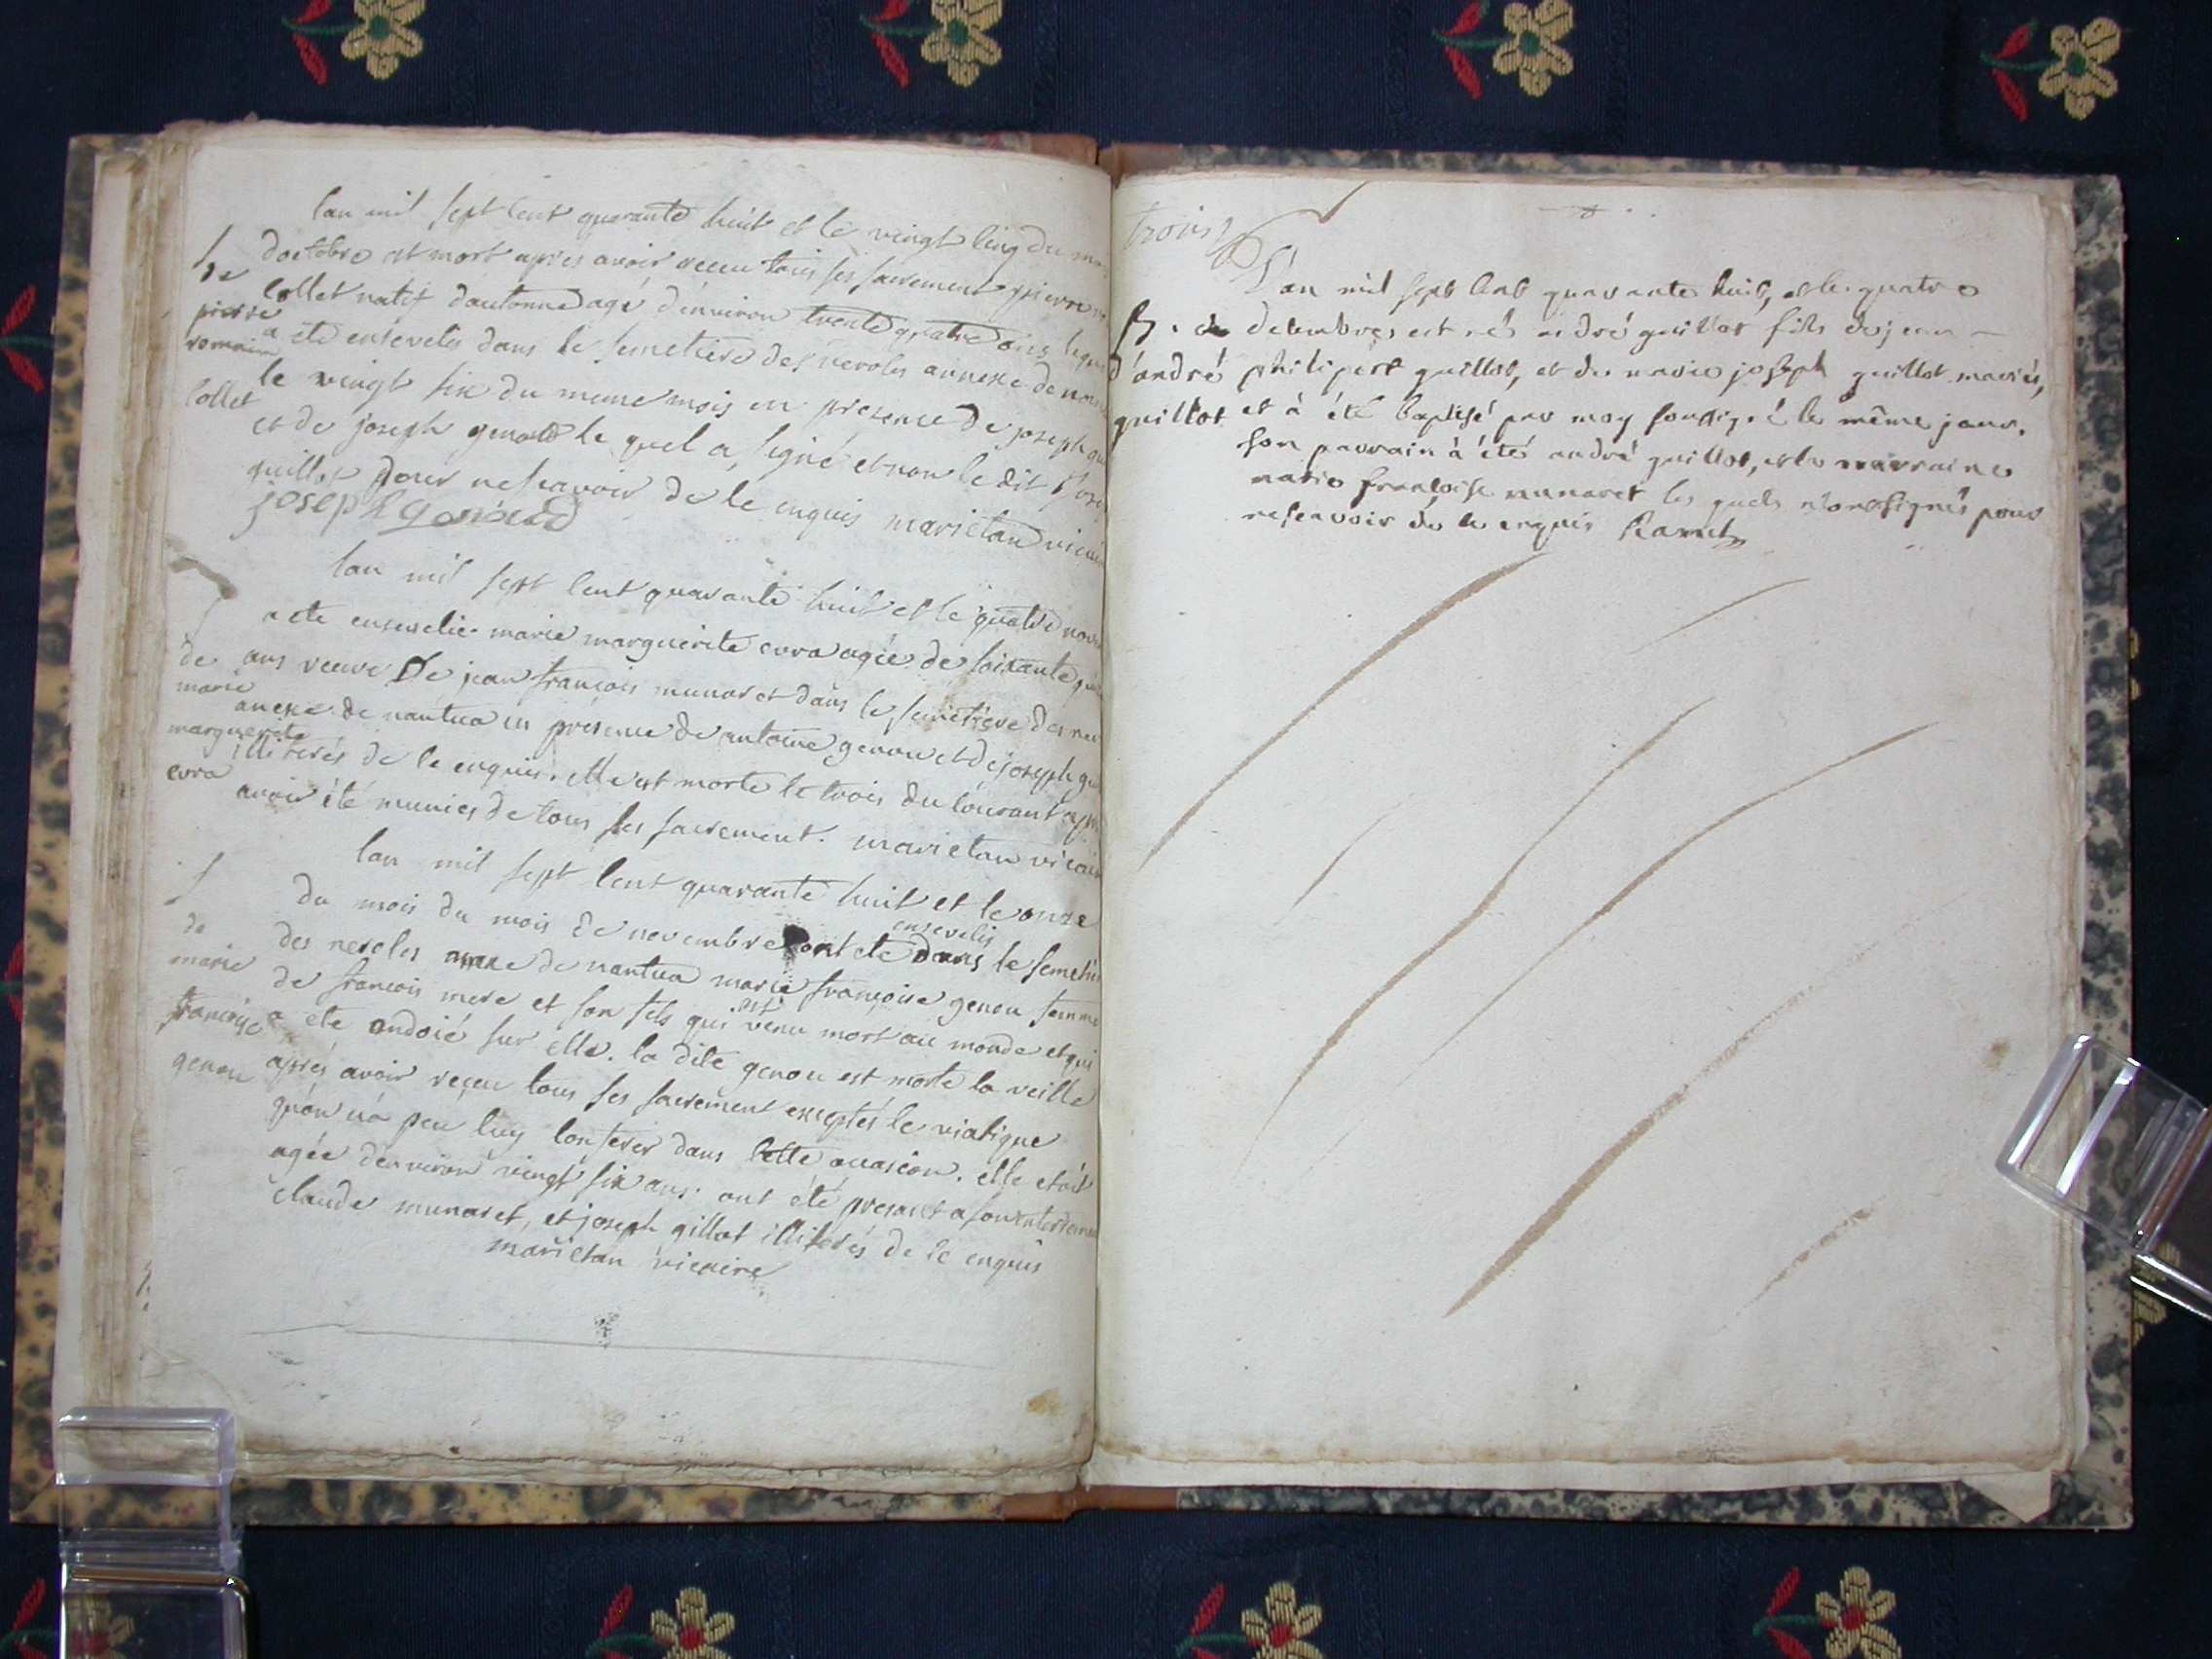 lan mil sept cent quarante huit et le vingt cinq du
doctobre est mort apres avoir receu tous ses sacrement pierre
collet natif dautonne agé denviron trente quatre ans lequel
a ete enseveli dans le semetiere des neroles annexe de
le vingt six du meme mois en presence de joseph
et de joseph genoud le quel a signé et non le dit
guillot pour ne scavoir de le enquis marietan vicaire
joseph genoud
S
de
pierre
romain
collet
lan mil sept cent quarante huit et le quatre
a ete ensevelie marie marguerite evra agée de soixante
ans veuve de jean françois munaret dans le semetiere des
anexe de nantua en présence de antoine genou et de joseph
illiterés de le enquis. elle est morte le trois du courant
avoir été munies de tous ses sacrement. marietan vicaire
S
de
marie
marguerite
evra
lan mil sept cent quarante huit et le onze
du mois du mois de novembre ont ete ensevelis dans le
des neroles anexe de nantua marie françoise genou femme
de francois mere et son fils qui est venu mort au monde et qui
a ete ondoié sur elle. la dite genou est morte la veille
aprés avoir reçeu tous ses sacrement exceptés le viatique
quon n'a peu luy conferer dans cette occasion. elle etoit
agée denviron vingt six ans. ont été present a son enterrement
claude munaret, et joseph gillot illiterés de le enquis
marietan vicaire
S
de
marie
francoise
genou
trois
L'an mil sept cent quarante huit, et le quatre
decembre est né andré guillot fils de jean
philipert guillot, et de marie joseph guillot mariés,
et à été baptisé par moy soussigné le même jour.
son parrain à été andré guillot, et la marraine
marie francoise munaret les quels n'ont signés pour
ne scavoir de le enquis Ravet
B. de
d'andré
guillot